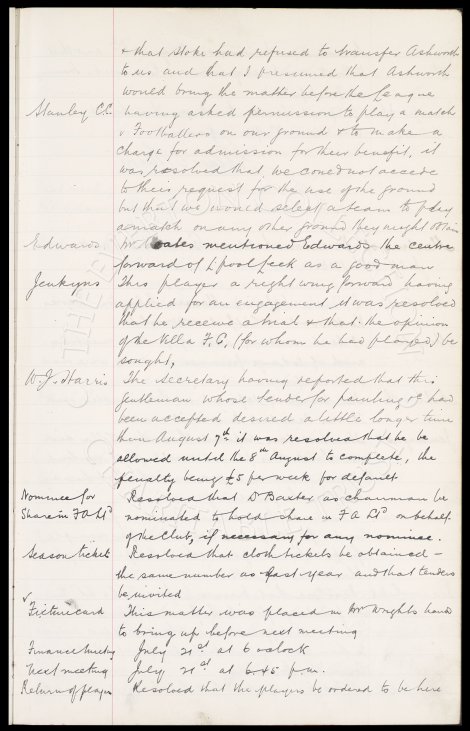 & that Stoke had refused to transfer Ashworth
to us and that I presumed that Ashworth
would bring the matter before the League
Stanley C.C. having asked permission to play a match
v Footballers on our ground & to make a
charge for admission for their benefit, it
was resolved that we could not accede
to their request for the use of the ground
but that we would select a team to play
a match on any other ground they might obtain
Edwards Mr Coates mentioned Edwards the centre
forward of L'pool Leek as a good man
Jenkyns This player a right wing forward having
applied for an engagement it was resolved
that he receive a trial & that the opinion
of the Villa F.C. (for whom he had played) be
sought,
W. J. Harris The Secretary having reported that this
gentleman whose tender for painting &c had
been accepted desired a little longer time
than August 7th it was resolved that he be
allowed until the 8th August to complete, the
penalty being £5 per week for default
Nominee for Resolved that D Baxter as chairman be
Share in F A Ltd nominated to hold share in F A Ltd on behalf
of the Club, if necessary for any nominee.
Season tickets Resolved that cloth tickets be obtained –
the same number as last year and that tenders
be invited
Fixture card This matter was placed in Mr Wright's hands
to bring up before next meeting
Finance meeting July 21st at 6 o'clock
Next meeting July 21st at 6.45 p.m.
Return of players Resolved that the players be ordered to be here